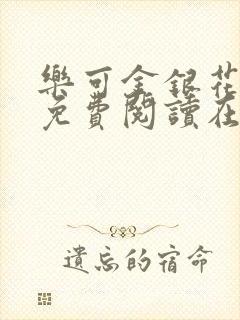 樂可金銀花
免費閱讀在
遺忘的宿命